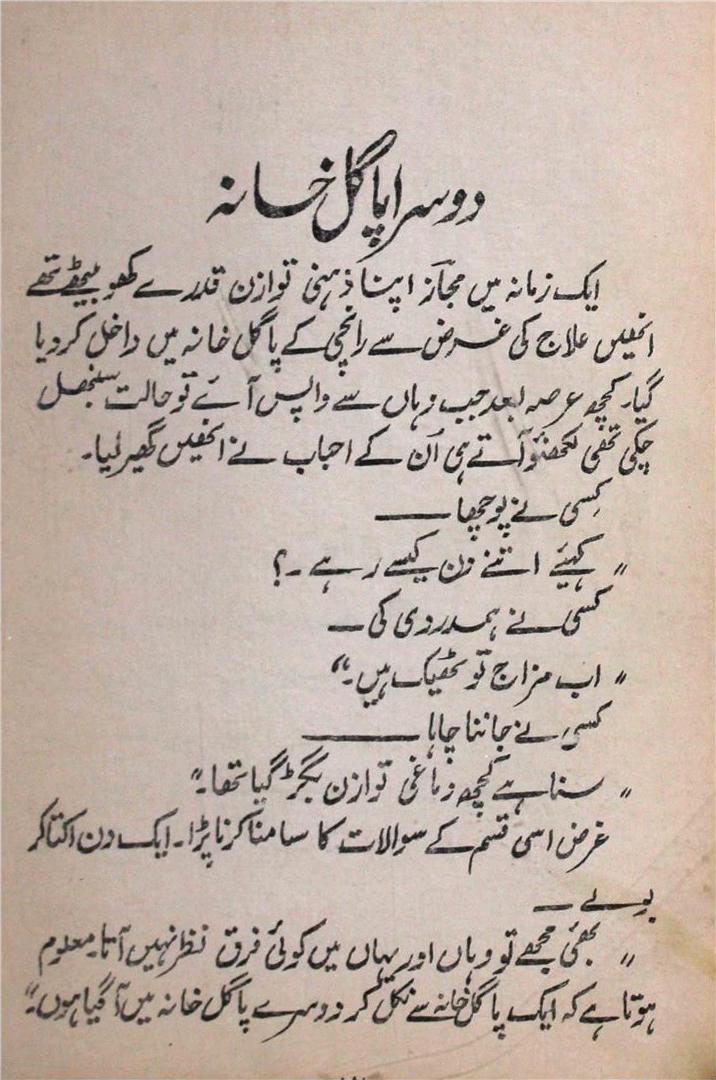 دوسرا پاگل خانہ
ایک زمانہ میں مجاز اپنا ذہنی توازن قدرے کھو بیٹھے تھے
انھیں علاج کی غرض سے رانچی کے پاگل خانہ میں داخل کر دیا
گیا۔ کچھ عرصہ بعد جب وہاں سے واپس آئے تو حالت سنبھل
چکی تھی لکھنؤ آتے ہی اُن کے احباب نے انھیں گھیر لیا۔
کِسی نے پوچھا ——
" کہیئے اتنے دن کیسے رہے ۔؟
کسی نے ہمدردی کی —
" اب مزاج تو ٹھیک ہیں۔"
کسی نے جاننا چاہا ——
" سنا ہے کچھ دماغی توازن بگڑ گیا تھا۔"
غرض اسی قسم کے سوالات کا سامنا کرنا پڑا۔ ایک دن اکتا کر
بولے —
" بھئی مجھے تو وہاں اور یہاں میں کوئی فرق نظر نہیں آتا۔ معلوم
ہوتا ہے کہ ایک پاگل خانہ سے نکل کر دوسرے پاگل خانہ میں آ گیا ہوں۔"